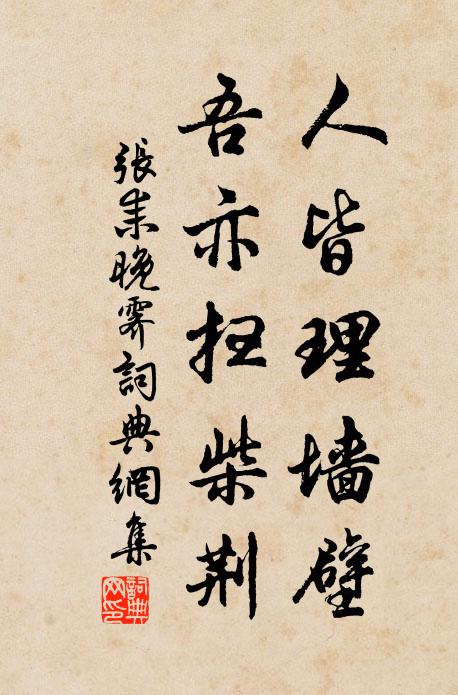 人皆理墙壁
吾亦扫柴荆
張耒晚霽詞典網集
詞典
网印